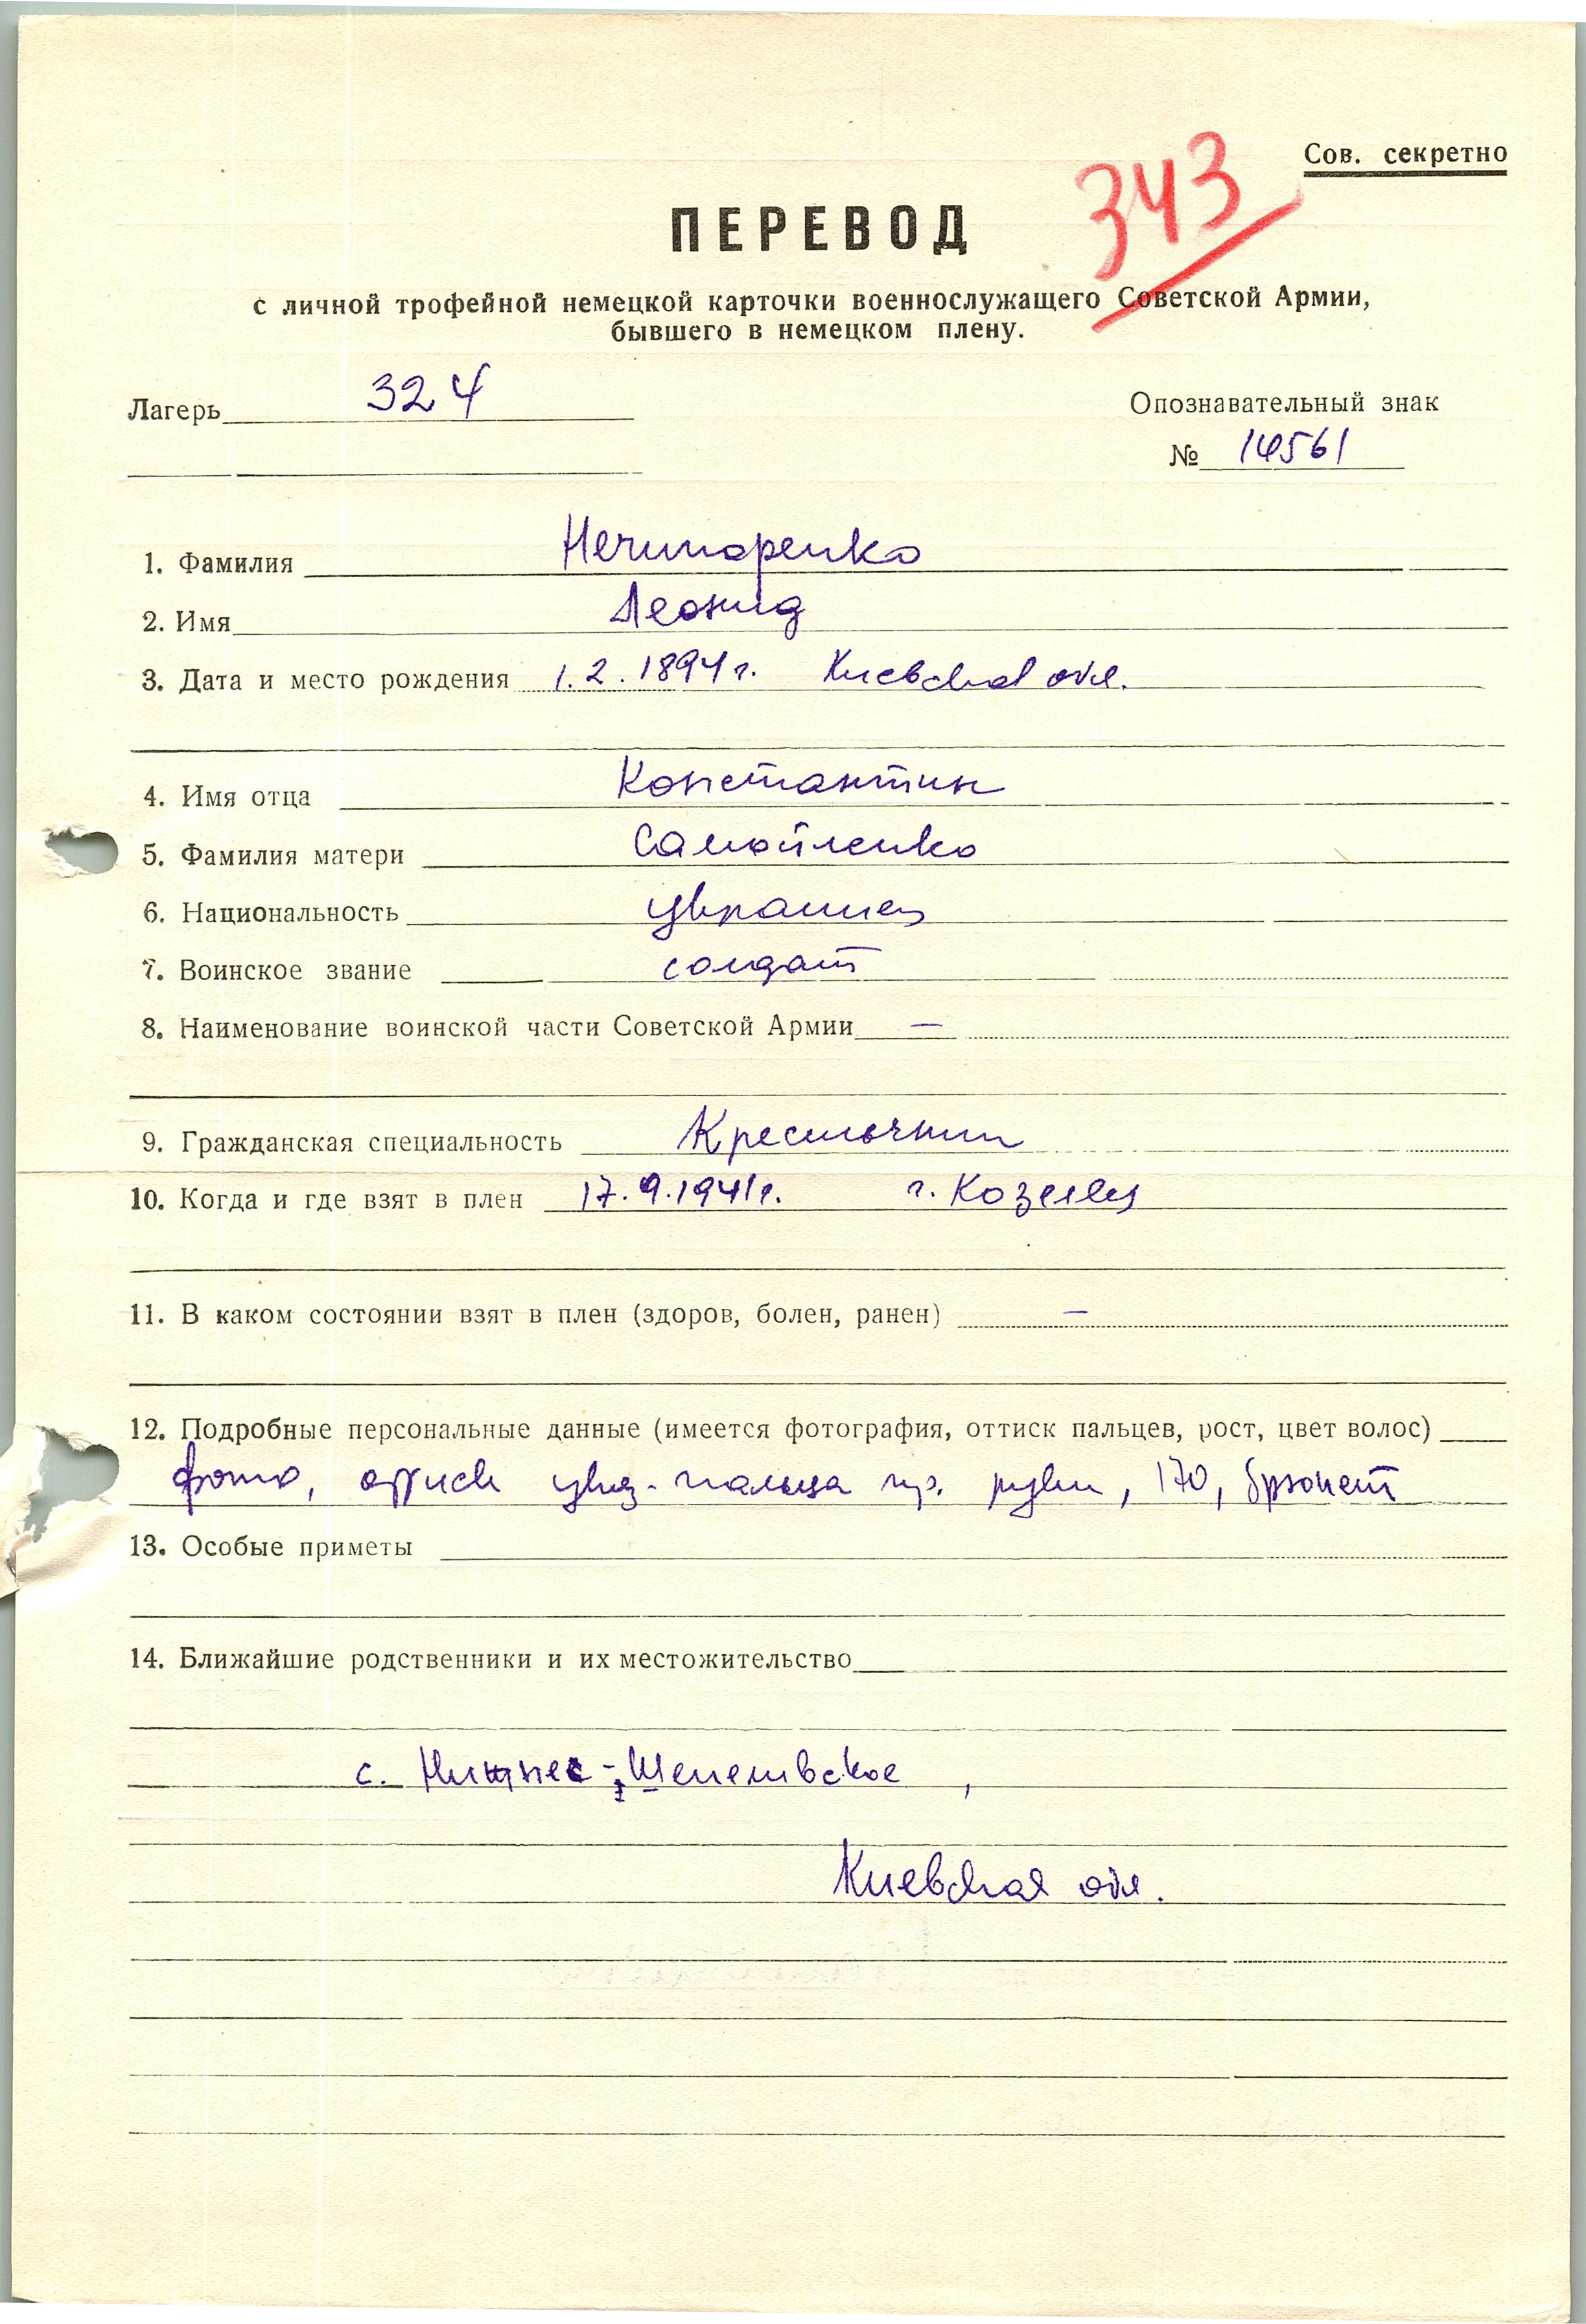 Сов. секретно
343
ПЕРЕВОД
с личной трофейной немецкой карточки военнослужащего Советской Армии,
бывшего в немецком плену.
Лагерь 324
Опознавательный знак
№ 14561
1. Фамилия Нечипоренко
2. Имя Леонид
3. Дата и место рождения 1.2.1894 г. Киевская обл.
4. Имя отца Константин
5. Фамилия матери Самойленко
6. Национальность украинец
7. Воинское звание солдат
8. Наименование воинской части Советской Армии —
9. Гражданская специальность Крестьянин
10. Когда и где взят в плен 17.9.1941 г. г. Козелец
11. В каком состоянии взят в плен (здоров, болен, ранен) —
12. Подробные персональные данные (имеется фотография, оттиск пальцев, рост, цвет волос)
фото, оттиск указ. пальца пр. руки, 170, брюнет
13. Особые приметы
14. Ближайшие родственники и их местожительство
с.
Киевская обл.